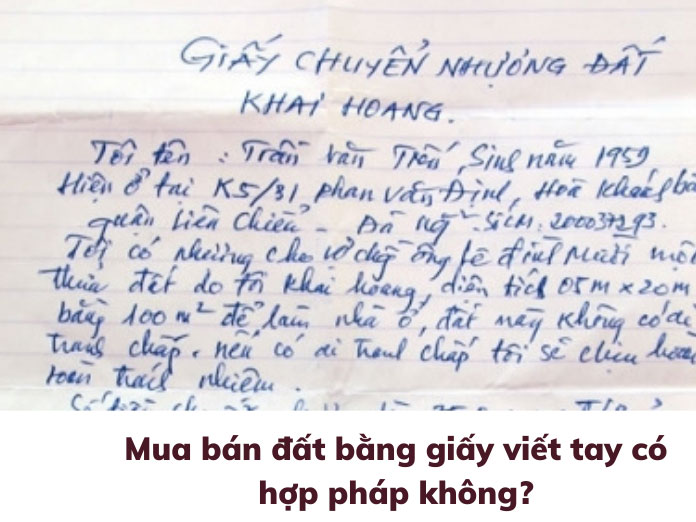 GIẤY CHUYỂN NHƯỢNG ĐẤT
KHAI HOANG.
Tôi tên : Trần Văn Trốn, Sinh năm 1959
Hiện ở tại K5/31 Phan Văn Định, Hoà Khánh bắ
quận Liên Chiểu - Đà Ng. SCM: 200037293.
Tôi có nhường cho vợ chồng ông Lê Đình Mười một
thửa đất do tôi khai hoang, diện tích 05m x 20m
bằng 100 m² để làm nhà ở, đất này không có ai
tranh chấp. nếu có ai tranh chấp tôi sẽ chịu hoàn
toàn trách nhiệm.
Mua bán đất bằng giấy viết tay có
hợp pháp không?